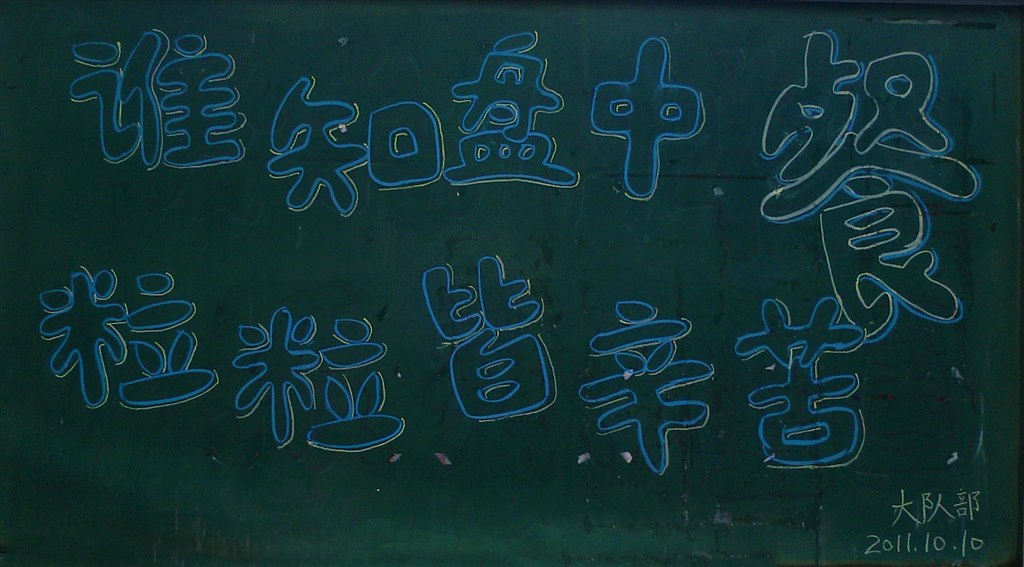 谁知盘中餐
粒粒皆辛苦
大队部
2011.10.10